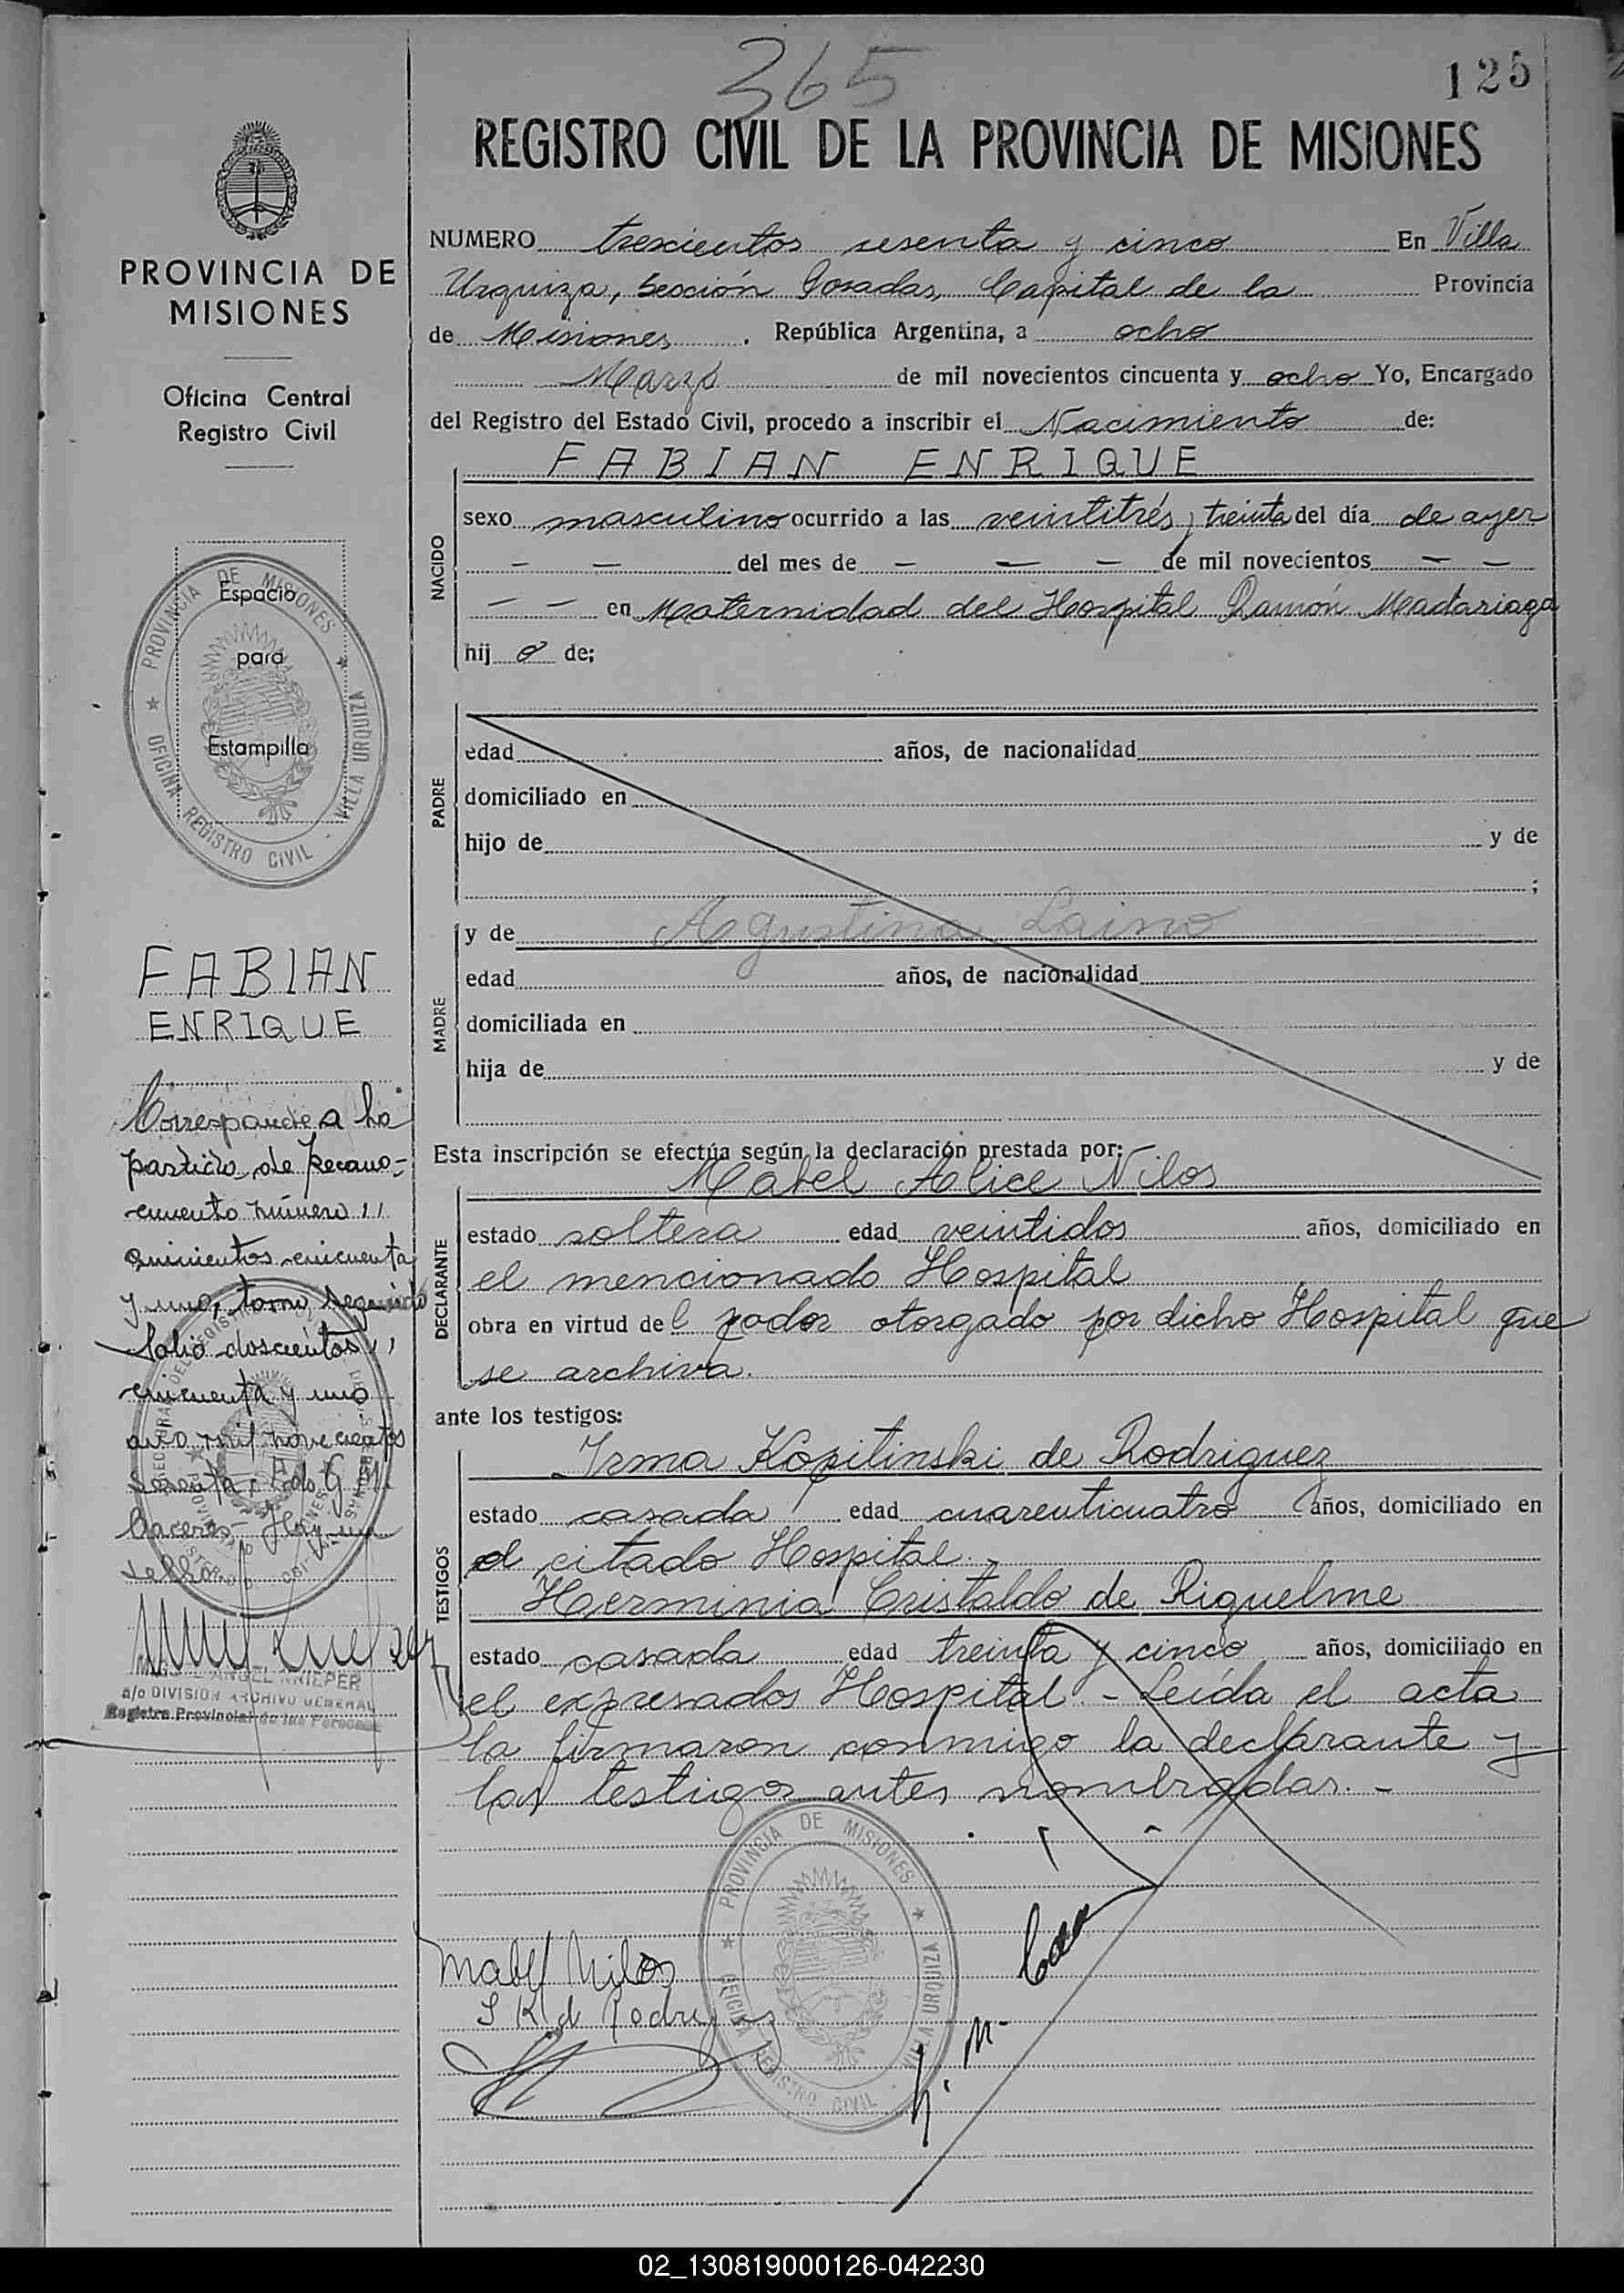 365
125
REGISTRO CIVIL DE LA PROVINCIA DE MISIONES
PROVINCIA DE
MISIONES
Oficina Central
Registro Civil
Espacio
para
Estampilla
PROVINCIA DE MISIONES
OFICINA REGISTRO CIVIL - VILLA URQUIZA
FABIAN
ENRIQUE
Corresponde a la
partida de Recono-
cimiento número
quinientos cincuenta
y uno, tomo segundo
folio doscientos
cincuenta y uno
año mil novecientos
Sesenta
Caceres - Hay un
sello
ANGEL KRIEPER
a/c DIVISION ARCHIVO GENERAL
Registro Provincial de las Personas
NUMERO trescientos sesenta y cinco En Villa
Urquiza, Sección Posadas, Capital de la Provincia
de Misiones. República Argentina, a ocho
Marzo de mil novecientos cincuenta y ocho Yo, Encargado
del Registro del Estado Civil, procedo a inscribir el Nacimiento de:
NACIDO
FABIAN ENRIQUE
sexo masculino ocurrido a las veintitrés y treinta del día de ayer
— — del mes de — — — de mil novecientos — —
— — en Maternidad del Hospital Ramón Madariaga
hij o de;
PADRE
edad años, de nacionalidad
domiciliado en
hijo de y de
;
MADRE
y de Agustina Laino
edad años, de nacionalidad
domiciliada en
hija de y de
Esta inscripción se efectúa según la declaración prestada por:
DECLARANTE
Mabel Alice Nilos
estado soltera edad veintidos años, domiciliado en
el mencionado Hospital
obra en virtud de l poder otorgado por dicho Hospital que
se archiva.
ante los testigos:
TESTIGOS
Irma Kopitinski de Rodriguez
estado casada edad cuarenticuatro años, domiciliado en
el citado Hospital.
Herminia Cristaldo de Riquelme
estado casada edad treinta y cinco años, domiciliado en
el expresados Hospital - Leída el acta
la firmaron conmigo la declarante y
los testigos antes nombradas. -
PROVINCIA DE MISIONES
OFICINA REGISTRO CIVIL - VILLA URQUIZA
Mabel Nilos
02_130819000126-042230